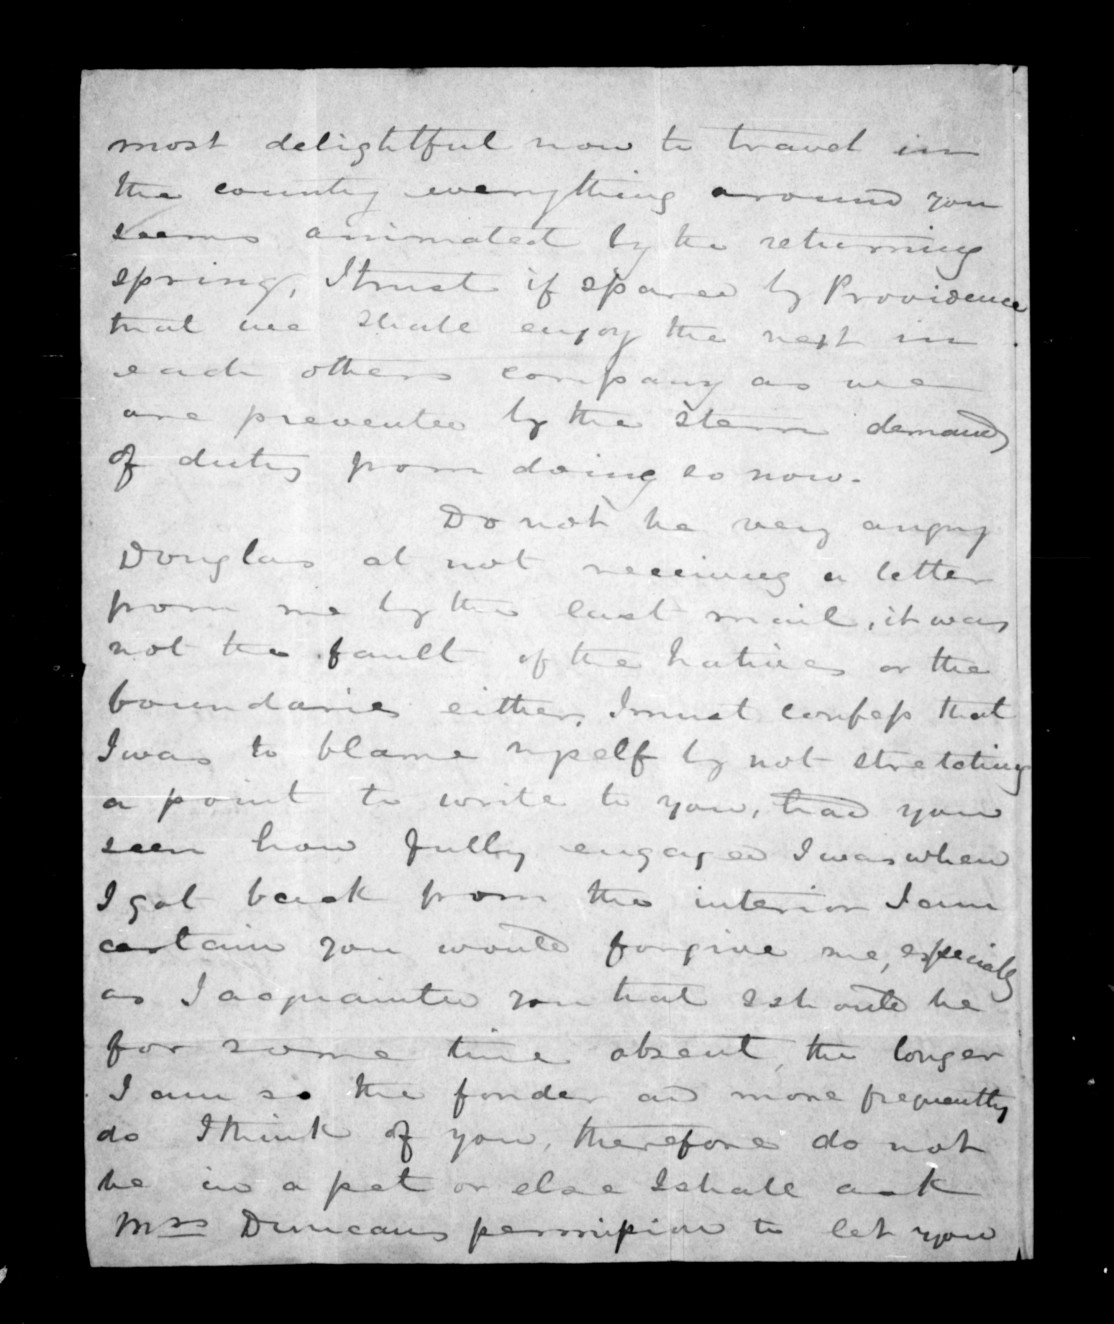 most delightful now to travel in
the country everything around you
seems animated by the returning
spring, I trust if spared by Providence
that we shall enjoy the next in
each others company as we
are prevented by the stern demands
of duty from doing so now.
Do not be very angry
Douglas at not receiving a letter
from me by the last mail, it was
not the fault of the Natives or the
boundaries either, I must confess that
I was to blame myself by not stretching
a point to write to you, had you
seen how fully engaged I was when
I got back from the interior I am
certain you would forgive me, especially
as I acquainted you that I should be
for some time absent, the longer
I am so the fonder and more frequently
do I think of you, therefore do not
be in a pet or else I shall ask
Mrs Duncans permission to let you